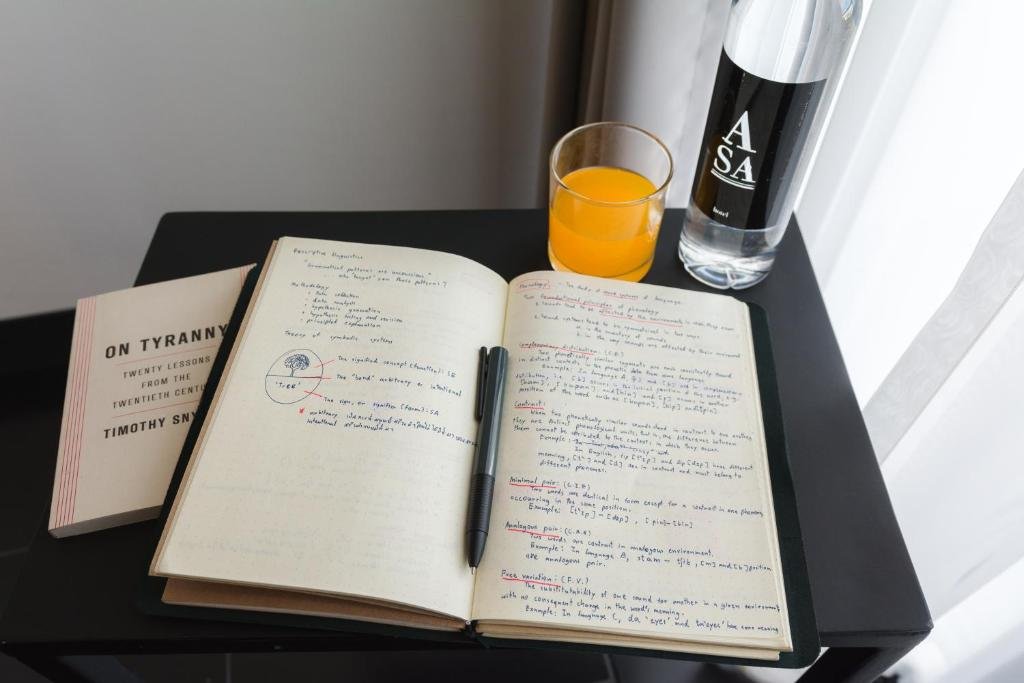 ON TYRANNY
TWENTY LESSONS
FROM THE
TWENTIETH CENTU
TIMOTHY SNY
Descriptive Linguistics
"Grammatical patterns are unconscious"
can these patterns?
Methodology
• Data collection
• data analysis
• hypothesis generation
• hypothesis testing and revision
• principled explanation
Theory of symbolic systems
The signified concept (function): SE
The "bond" arbitrary or intentional
"TREE"
The sign, or signifier (form): SA
* arbitrary
intentional
Phonology: - The study of sound systems of language.
Two foundational principles of phonology
1. sounds tend to be affected by the environments in which they occur
2. sound systems tend to be symmetrical in two ways
a. in the inventory of sounds
b. in the way sounds are affected by their environment
Complementary distribution: (C.D.)
Two phonetically similar segments are
in distinct contexts, in the phonetic data from some language
Example: In language A, [p] and [b] are in complementary
distribution, i.e. [b] occurs in the initial position of the word, e.g.
and [p] occurs in another
position of the word such as
Contrast:
When two phonetically similar sounds stand in contrast to one another
they are distinct phonological units, that is, the difference between
them cannot be attributed by the contexts in which they occur.
Example:
In English, and have different
meaning, and are in contrast and must belong to
different phonemes.
Minimal pair: (C.I.E)
Two words are identical in form except for a contrast in one phoneme
occurring in the same position.
Example: , [pin]-[bin]
Analogous pair: (C.A.E)
Two words are contrast in analogous environment.
Example: In language B, , [m] and [b] position
are analogous pair.
Free variation: (F.V.)
The substitutability of one sound for another in a given environment
with no consequent change in the word's meaning.
Example: In language C, da 'eyes' and ta 'eyes' have same meaning
A
SA
hotel